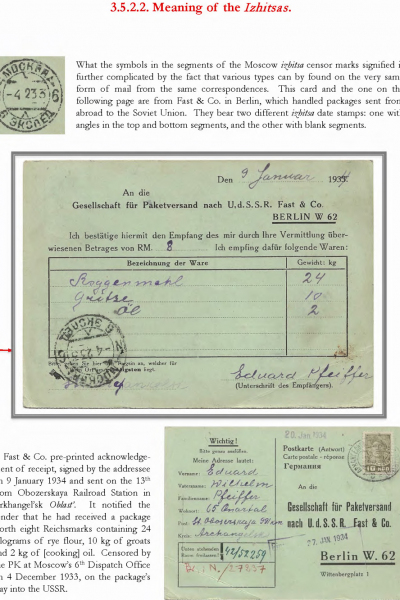 3.5.2.2. Meaning of the Izhitsas.
What the symbols in the segments of the Moscow izhitsa censor marks signified i
further complicated by the fact that various types can by found on the very sam
form of mail from the same correspondences. This card and the one on th
following page are from Fast & Co. in Berlin, which handled packages sent from
abroad to the Soviet Union. They bear two different izhitsa date stamps: one with
angles in the top and bottom segments, and the other with blank segments.
МОСКВА
-4 23 3
6
Den 9 Januar 1934.
An die
Gesellschaft für Paketversand nach U.d.S.S.R. Fast & Co.
BERLIN W 62
Ich bestätige hiermit den Empfang des mir durch Ihre Vermittlung über-
wiesenen Betrages von RM. 8 Ich empfing dafür folgende Waren:
Bezeichnung der Ware Gewicht: kg
Roggenmehl 24
Grütze 10
Öl 2
Eduard Pfeiffer
(Unterschrift des Empfängers).
Fast & Co. pre-printed acknowledge-
ent of receipt, signed by the addressee
n 9 January 1934 and sent on the 13th
om Obozerskaya Railroad Station in
rkhangel'sk Oblast'. It notified the
ender that he had received a package
orth eight Reichsmarks containing 24
ilograms of rye flour, 10 kg of groats
nd 2 kg of [cooking] oil. Censored by
he PK at Moscow's 6th Dispatch Office
n 4 December 1933, on the package's
ay into the USSR.
Wichtig!
Bitte genau ausfüllen.
Meine Adresse lautet:
Vorname: Eduard
Vatersname: Wilhelm
Familienname: Pfeiffer
Wohnort:
Post:
Kreis: Archangelsk
42/52259
27237
20. Jan 1934
Postkarte (Antwort)
Carte postale - réponse
Германия
An die
Gesellschaft für Paketversand
nach U.d.S.S.R. Fast & Co.
27. JAN 1934
Berlin W. 62
Wittenbergplatz 1